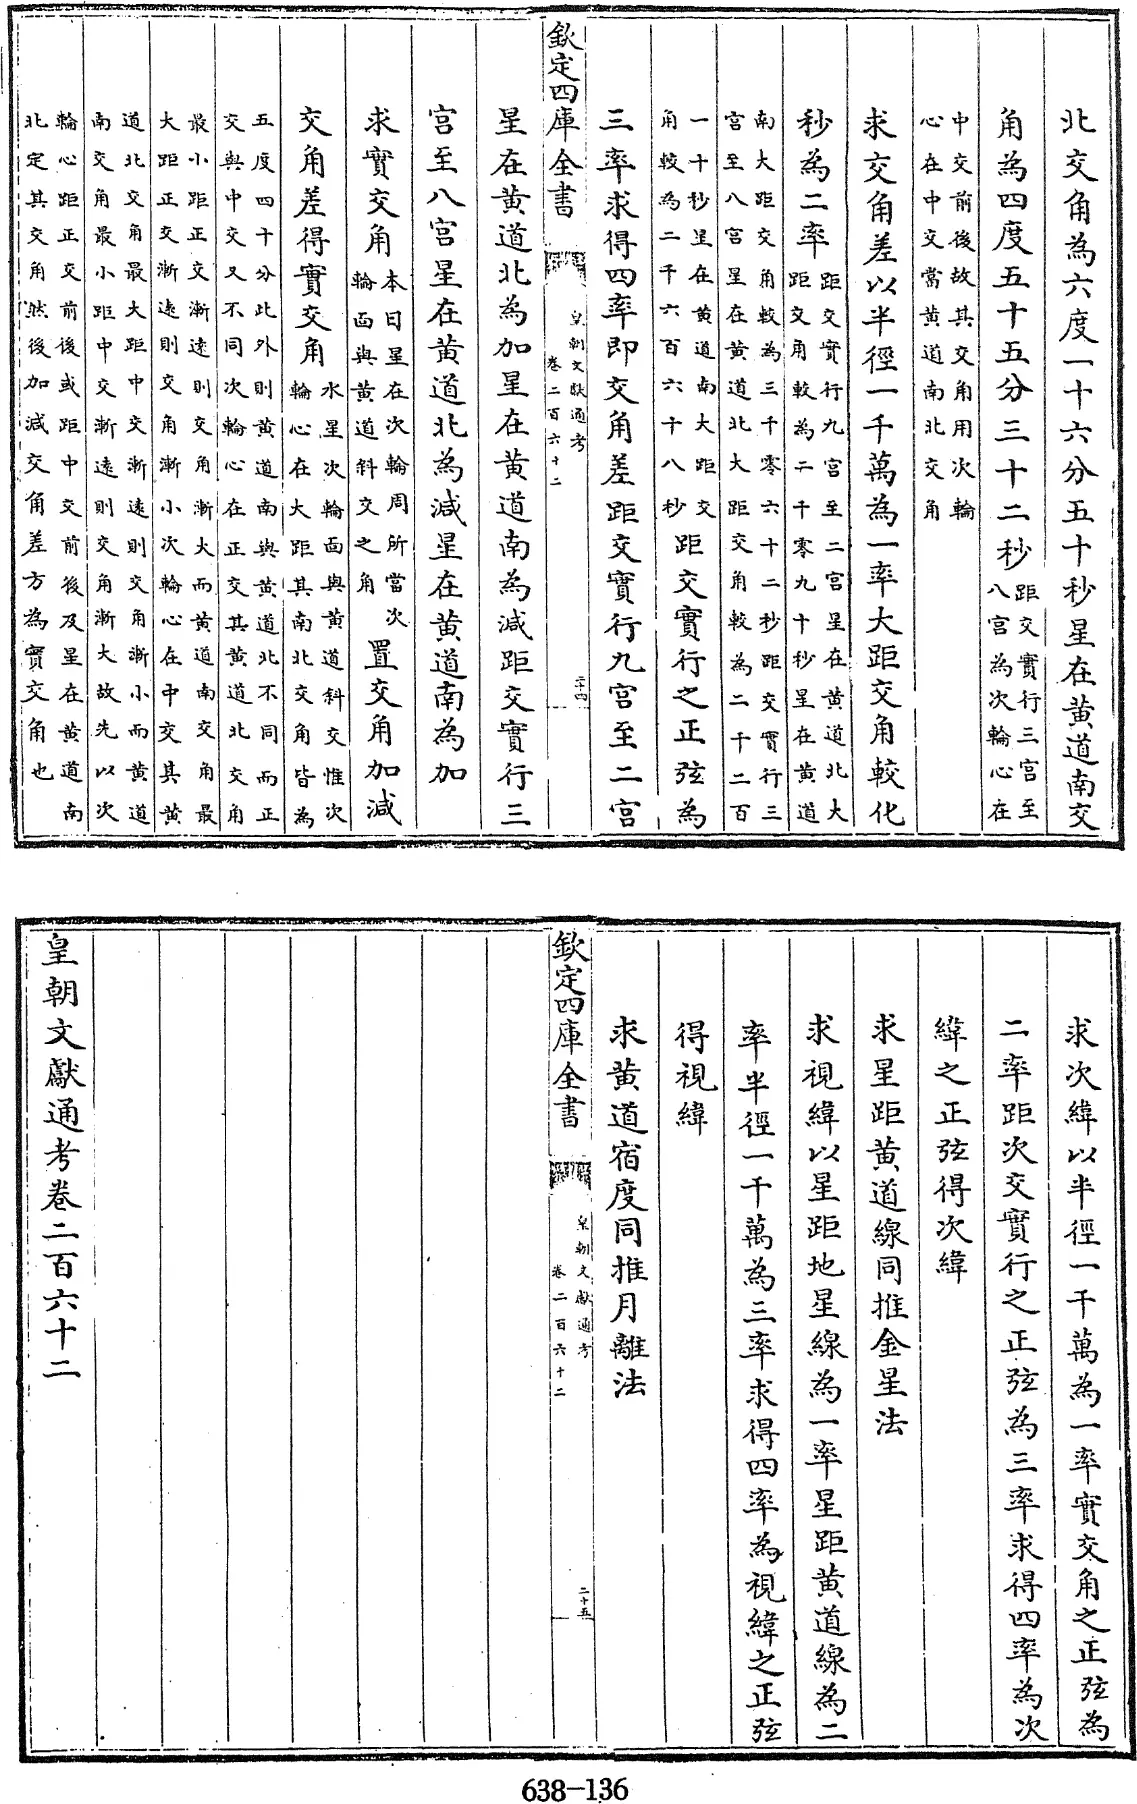 北交角為六度一十六分五十秒星在黄道南交
角為四度五十五分三十二秒距交實行三宫至
八宫為次輪心在
中交前後故其交角用次輪
心在中交當黄道南北交角
求交角差以半徑一千萬為一率大距交角較化
秒為二率距交實行九宫至二宫星在黄道北大
距交角較為二千零九十秒星在黄道
南大距交角較為三千零六十二秒距交實行三
宫至八宫星在黄道北大距交角較為二千二百
一十秒星在黄道南大距交
角較為二千六百六十八秒距交實行之正弦為
三率求得四率即交角差距交實行九宫至二宫
欽定四庫全書
皇朝文獻通考
卷二百六十二
二十四
星在黄道北為加星在黄道南為減距交實行三
宫至八宫星在黄道北為減星在黄道南為加
求實交角本日星在次輪周所當次
輪面與黄道斜交之角置交角加減
交角差得實交角水星次輪面與黄道斜交惟次
輪心在大距其南北交角皆為
五度四十分此外則黄道南與黄道北不同而正
交與中交又不同次輪心在正交其黄道北交角
最小距正交漸遠則交角漸大而黄道南交角最
大距正交漸遠則交角漸小次輪心在中交其黄
道北交角最大距中交漸遠則交角漸小而黄道
南交角最小距中交漸遠則交角漸大故先以次
輪心距正交前後或距中交前後及星在黄道南
北定其交角然後加減交角差方為實交角也
求次緯以半徑一千萬為一率實交角之正弦為
二率距次交實行之正弦為三率求得四率為次
緯之正弦得次緯
求星距黄道線同推金星法
求視緯以星距地星線為一率星距黄道線為二
率半徑一千萬為三率求得四率為視緯之正弦
得視緯
求黄道宿度同推月離法
欽定四庫全書
皇朝文獻通考
卷二百六十二
二十五
皇朝文獻通考卷二百六十二
638-136